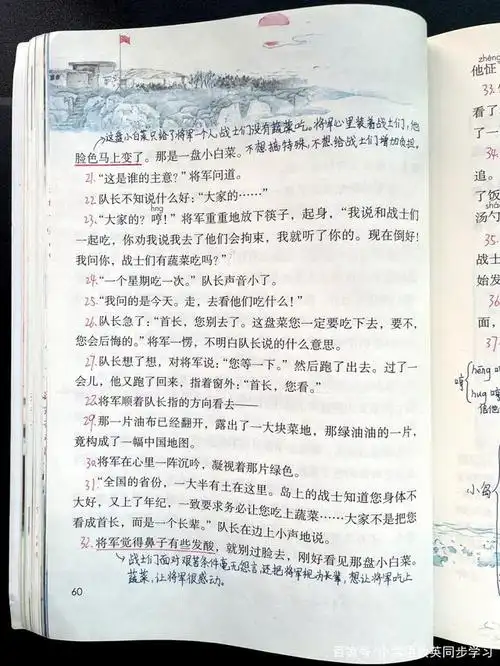 这盘小白菜只给了将军一个人,战士们没有蔬菜吃。将军心里装着战士们,他
脸色马上变了。那是一盘小白菜。不想搞特殊,不想给战士们增加负担,
21.“这是谁的主意?”将军问道。
22.队长不知说什么好:“大家的……”
hng
23.“大家的?哼!”将军重重地放下筷子,起身,“我说和战士们
一起吃,你劝我说我去了他们会拘束,我就听了你的。现在倒好!
我问你,战士们有蔬菜吃吗?”
24.“一个星期吃一次。”队长声音小了。
25.“我问的是今天。走,去看他们吃什么!”
26.队长急了:“首长,您别去了。这盘菜您一定要吃下去,要不,
您会后悔的。”将军一愣,不明白队长说的什么意思。
27.队长想了想,对将军说:“您等一下。”然后跑了出去。过了一
会儿,他又跑了回来,指着窗外:“首长,您看。”
28.将军顺着队长指的方向看去——
29.那一片油布已经翻开,露出了一大块菜地,那绿油油的一片,
竟构成了一幅中国地图。
30.将军在心里一阵沉吟,凝视着那片绿色。
31.“全国的省份,一大半有土在这里。岛上的战士知道您身体不
大好,又上了年纪,一致要求务必让您吃上蔬菜……大家不是把您
看成首长,而是一个长辈。”队长在边上小声地说。
32.将军觉得鼻子有些发酸,就别过脸去,刚好看见那盘小白菜。
战士们面对艰苦条件毫无怨言,还把将军视为长辈,想让将军吃上
蔬菜,让将军很感动。
60
zhèng
他怔
33.
看了
34.
追。
了饭
汤勺
35.
战士
始发
36
37.
hēng
小岛